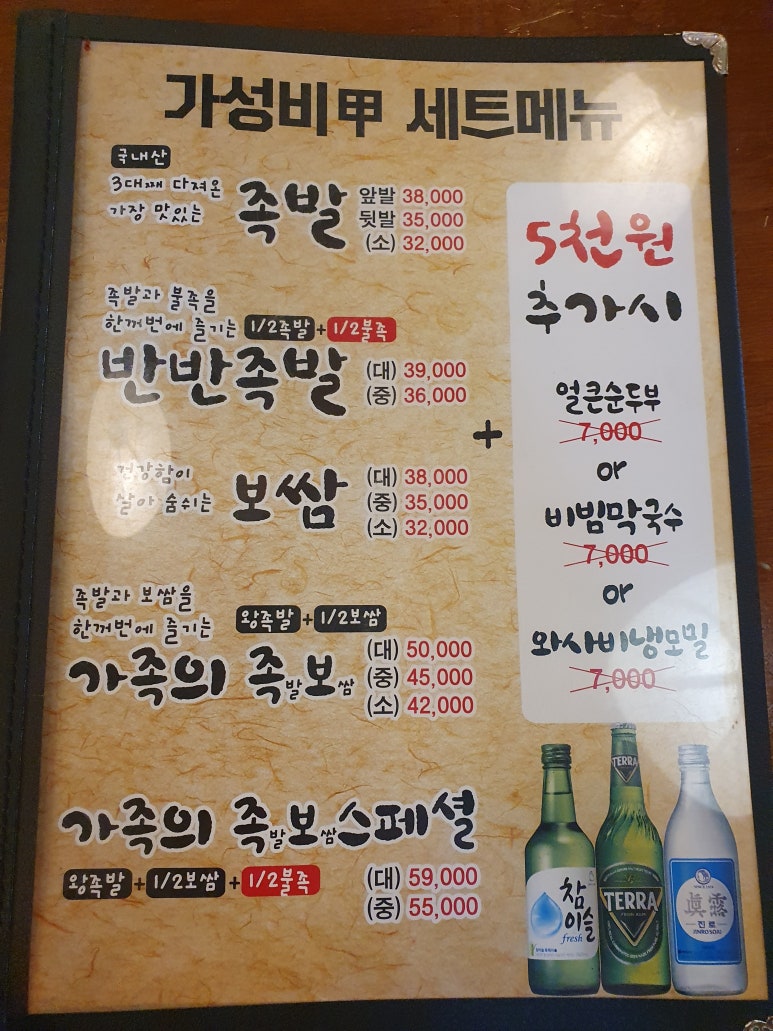 가성비甲 세트메뉴
국내산
3대째 다져온
가장 맛있는
족발
앞발 38,000
뒷발 35,000
(소) 32,000
족발과 불족을
한꺼번에 즐기는 1/2족발+1/2불족
반반족발
(대) 39,000
(중) 36,000
건강함이
살아 숨쉬는
보쌈
(대) 38,000
(중) 35,000
(소) 32,000
족발과 보쌈을
한꺼번에 즐기는
왕족발+1/2보쌈
가족의 족발보쌈
(대) 50,000
(중) 45,000
(소) 42,000
가족의 족발보쌈스페셜
왕족발+1/2보쌈+1/2불족
(대) 59,000
(중) 55,000
+
5천원
추가시
얼큰순두부
7,000
or
비빔막국수
7,000
or
와사비냉모밀
7,000
참이슬
fresh
TERRA
TERRA
眞露
진로
JINRO SOJU